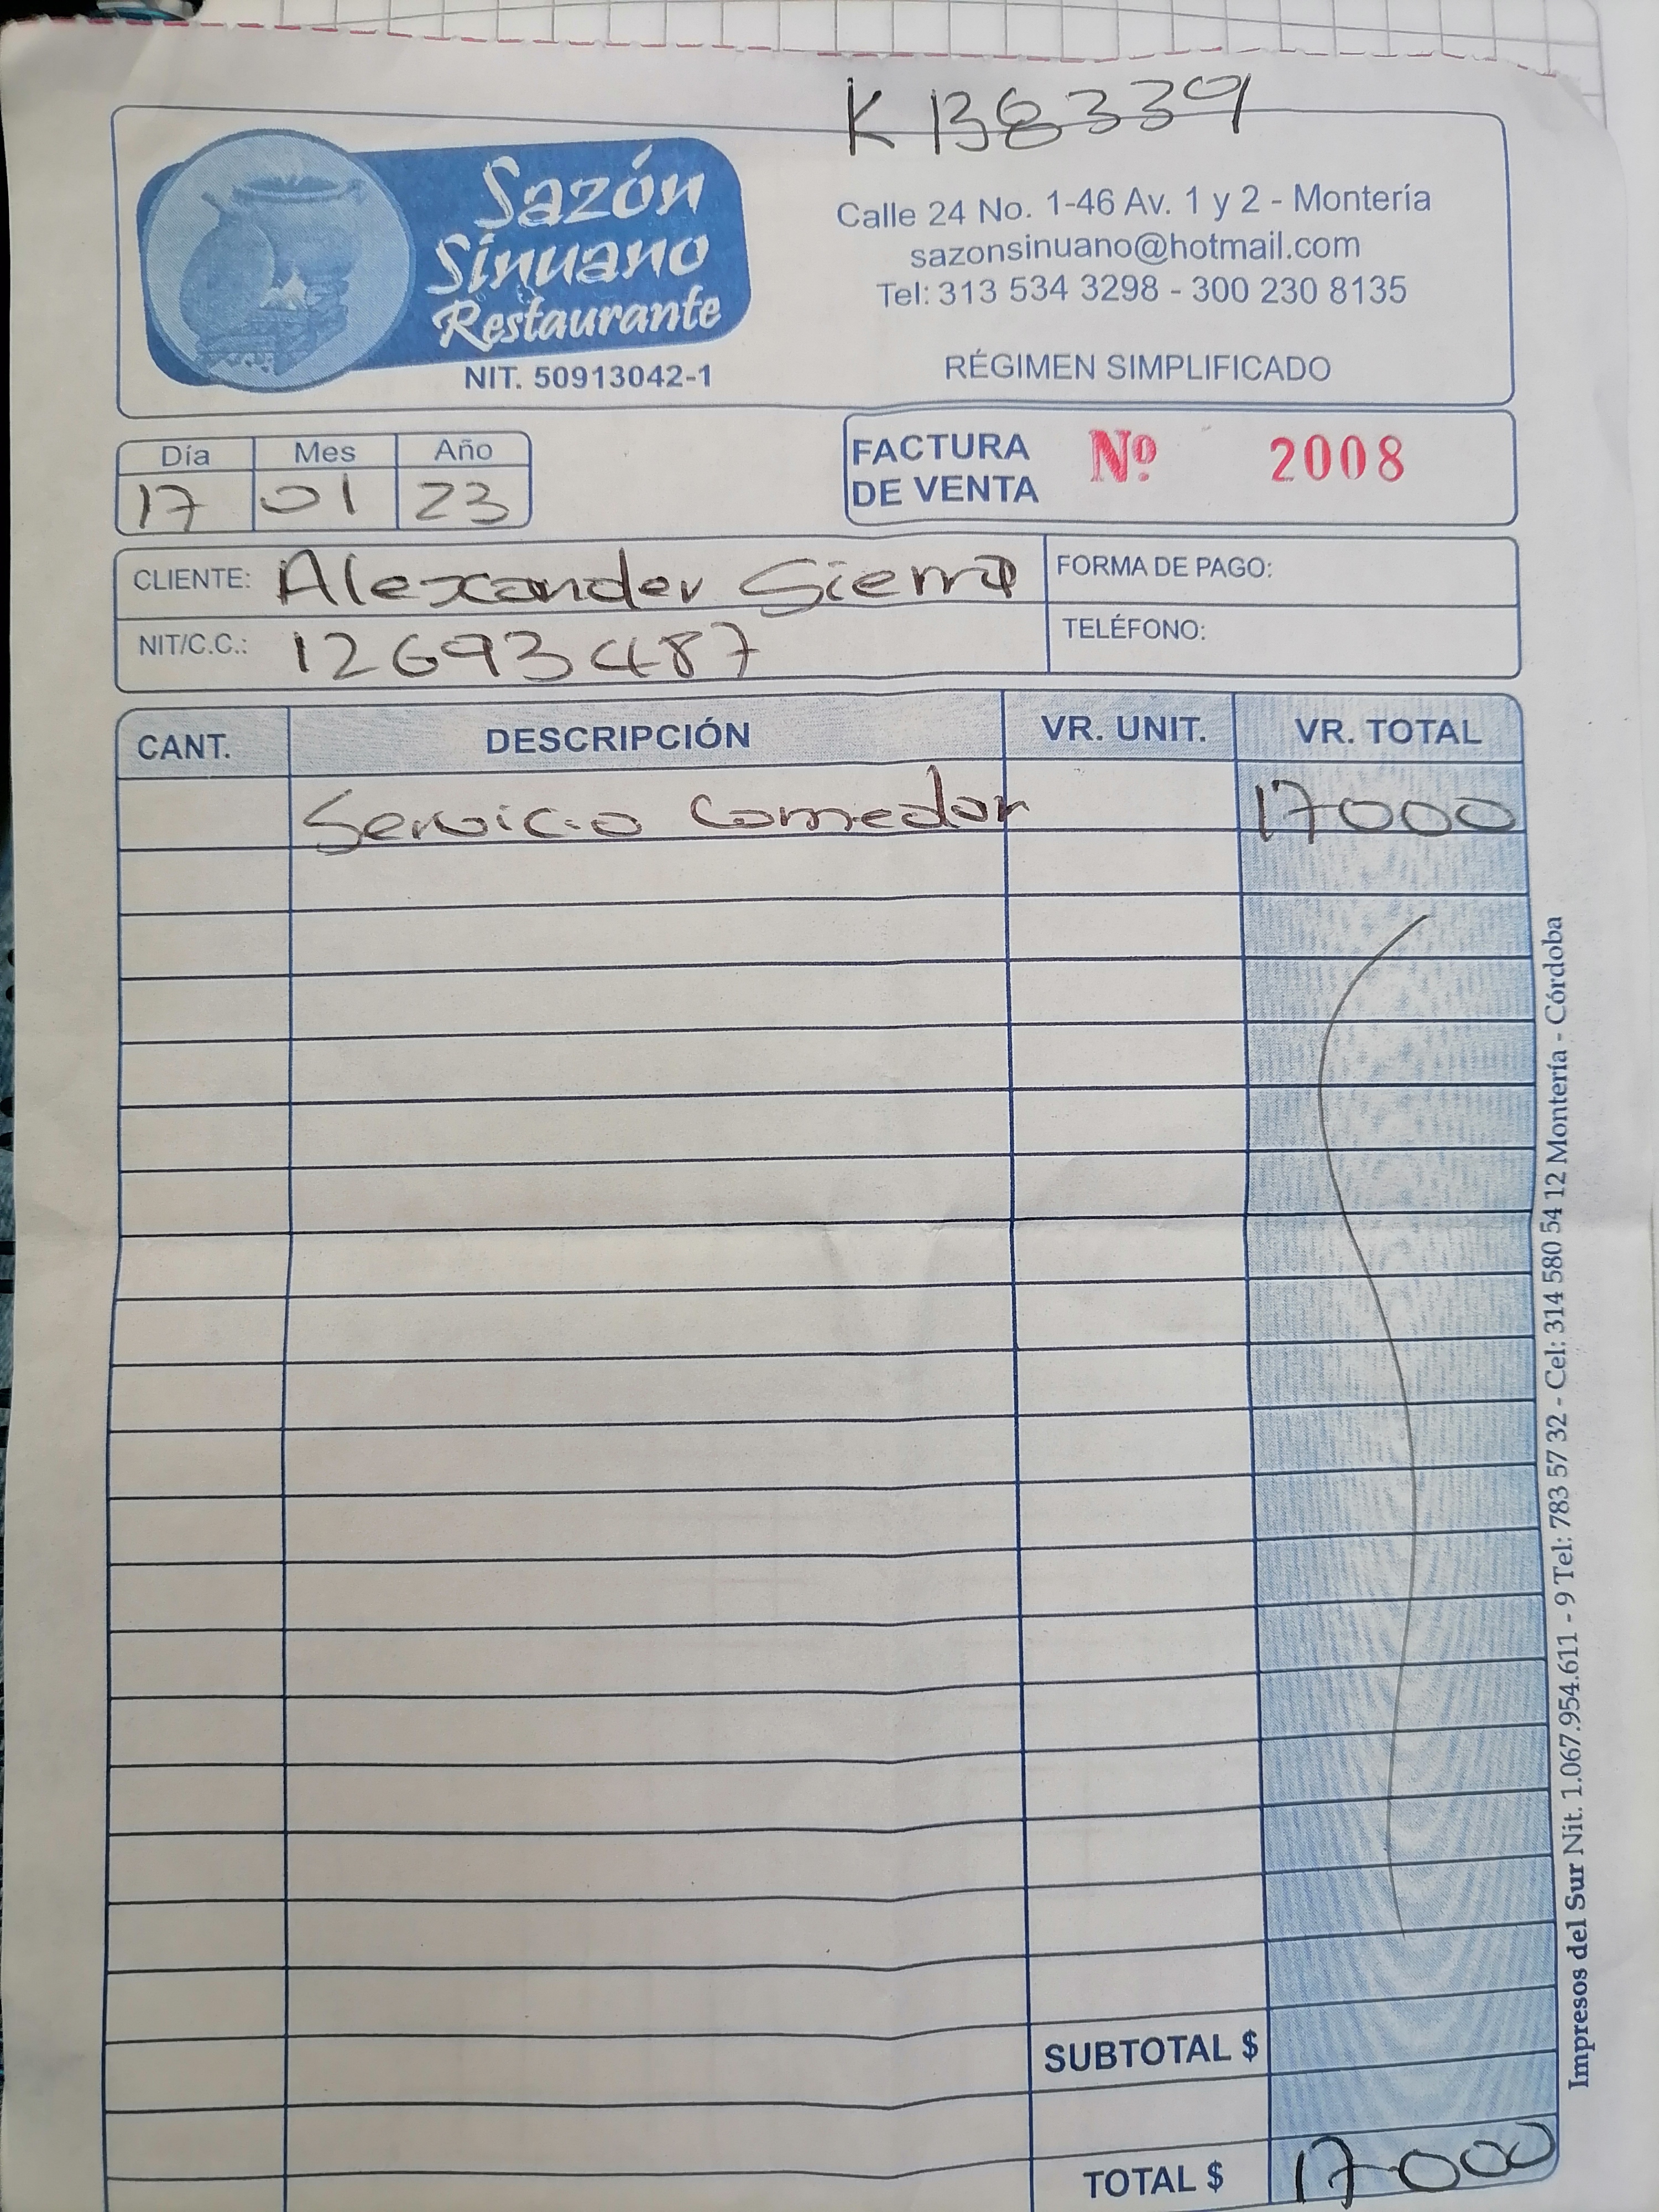 K138339
Sazón
Sinuano
Restaurante
NIT. 50913042-1
Calle 24 No. 1-46 Av. 1 y 2 - Montería
sazonsinuano@hotmail.com
Tel: 313 534 3298 - 300 230 8135
RÉGIMEN SIMPLIFICADO
Día Mes Año
17 01 23
FACTURA
DE VENTA
Nº 2008
CLIENTE: Alexander Sierra
FORMA DE PAGO:
NIT/C.C.: 12693487
TELÉFONO:
CANT. DESCRIPCIÓN VR. UNIT. VR. TOTAL
Servicio Comedor 17000
SUBTOTAL $
TOTAL $ 17000
Impresos del Sur Nit. 1.067.954.611 - 9 Tel: 783 57 32 - Cel: 314 580 54 12 Montería - Córdoba